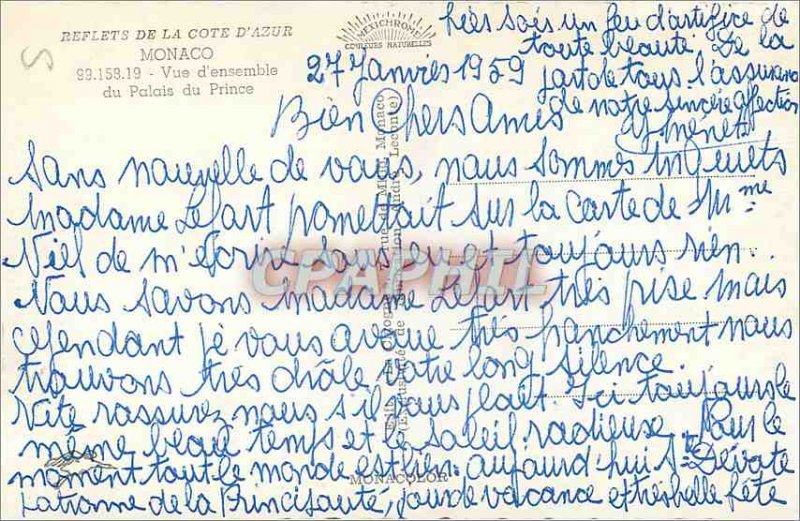 REFLETS DE LA COTE D'AZUR
MONACO
99.158.19 - Vue d'ensemble
du Palais du Prince
MEXICHROME
COULEURS NATURELLES
27 Janvier 1959
Bien Chers Amis
Sans nouvelle de vous, nous sommes inquiets
Madame Lefart promettait sur la carte de Mme
Niel de m'écrire sous peu et toujours rien.
Nous savons Madame Lefart très prise mais
cependant je vous avoue très franchement nous
trouvons très drôle votre long silence.
Vite rassurez nous s'il vous plaît. Ici toujours le
même beau temps et le soleil radieux. Pour le
moment tout le monde est bien. aujourd'hui Ste Dévote
Patronne de la Principauté, jour de vacance et très belle fête
hier soir un feu d'artifice de
toute beauté. De la
part de tous l'assurance
de notre sincère affection
MONACOLOR
CPAPHIL